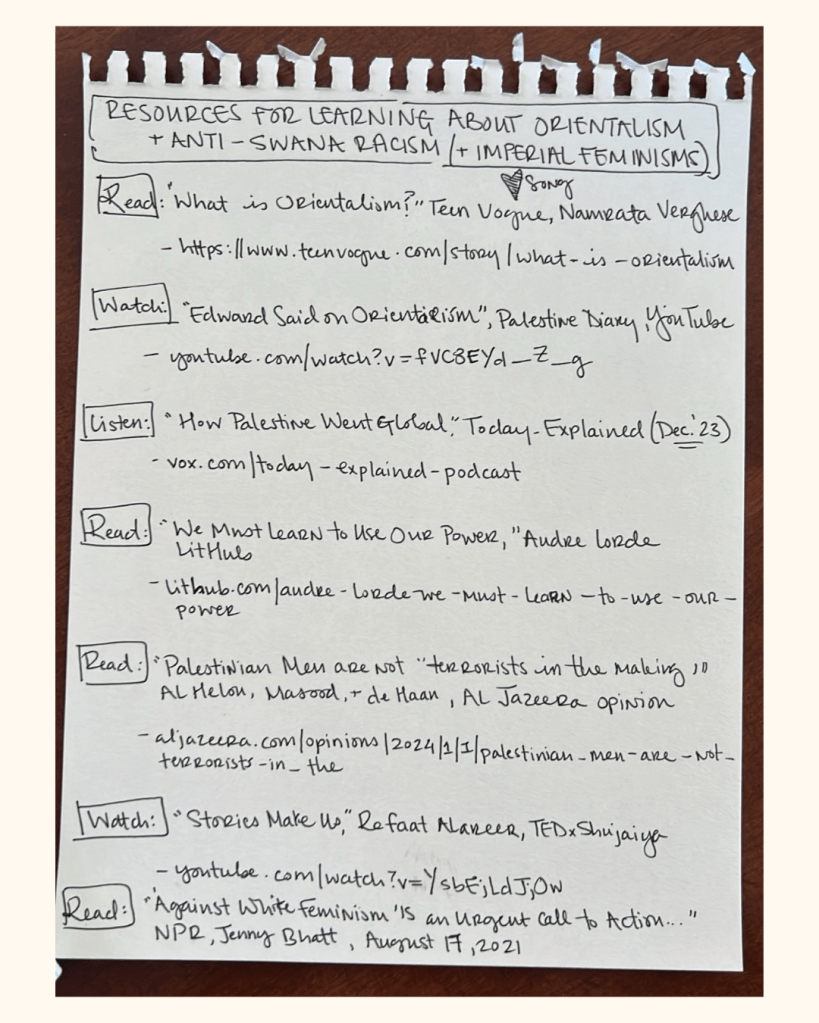 RESOURCES FOR LEARNING ABOUT ORIENTALISM
+ ANTI-SWANA RACISM (+ IMPERIAL FEMINISMS)
song
Read: "What is Orientalism?" Teen Vogue, Namrata Verghese
- https://www.teenvogue.com/story/what-is-orientalism
Watch: "Edward Said on Orientalism", Palestine Diary, YouTube
- youtube.com/watch?v=fVC8EYd_Z_g
Listen: "How Palestine Went Global," Today-Explained (Dec. '23)
- vox.com/today-explained-podcast
Read: "We Must Learn to Use Our Power," Audre Lorde
LitHub
- lithub.com/audre-lorde-we-must-learn-to-use-our-
power
Read: "Palestinian Men are not "terrorists in the making,""
Al Helou, Masood, + de Haan, Al Jazeera opinion
- aljazeera.com/opinions/2024/1/1/palestinian-men-are-not-
terrorists-in-the
Watch: "Stories Make Us," Refaat Alareer, TEDxShujaiya
- youtube.com/watch?v=YsbEjLdJjOw
Read: "'Against White Feminism' Is an Urgent Call to Action..."
NPR, Jenny Bhatt, August 17, 2021